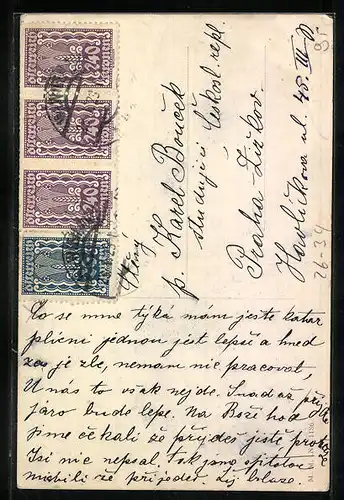 Ctěný
p. Karel Bouček
studující Českosl. repl.
Praha-Žižkov.
Havlíčkova ul. 45. III
26-34
240
240
240
Co se mne týká mám jeste katar
plicni jednou jest lepší a hned
zas je zle, nemam nic pracovat,
U nás to však nejde. Snad až přijde
jaro bude lepe. Na Boží hod
jsme čekali že přijdeš jistě proto
Isi nic nepsal, tak jsme
mislili že přijedeš.